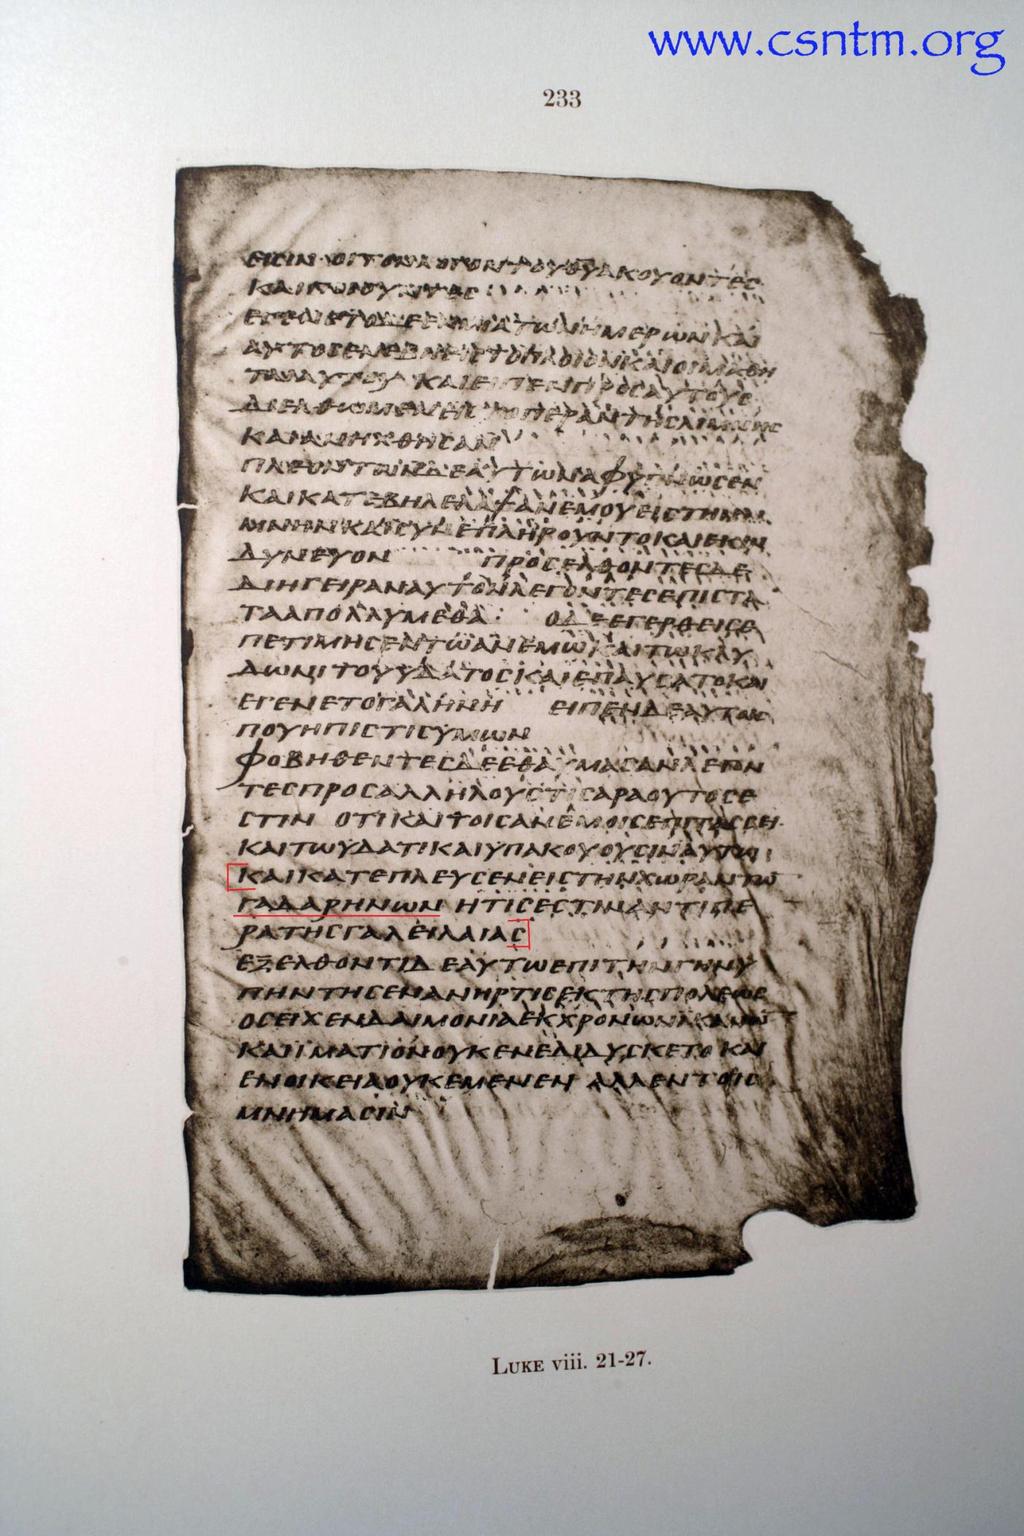 www.csntm.org
233
ΕΙCΙΝ ΟΙΤΟΝ ΑΚΟΥΟΝΤΕC
ΚΑΙ
ΗΜΕΡΩΝΚΑΙ
ΑΥΤΟC ΠΛΟΙΟΝΚΑΙΟΙ
ΚΑΙΕΙΠΕΝΠΡΟCΑΥΤΟΥC
ΔΙΕΛΘΩΜΕΝΕΙC ΠΕΡΑΝΤΗCΛΙΜΝΗC
ΚΑΙΑΝΗΧΘΗCΑΝ
ΠΛΕΟΝΤΩΝΔΕΑΥΤΩΝΑΦΥΠΝΩCΕΝ
ΚΑΙΚΑΤΕΒΗΛΕΛΑΨΑΝΕΜΟΥΕΙCΤΗΝΛΙ
ΜΝΗΝΚΑΙCΥΝΕΠΛΗΡΟΥΝΤΟΚΑΙΕΚΙΝ
ΔΥΝΕΥΟΝ ΠΡΟCΕΛΘΟΝΤΕCΔΕ
ΔΙΗΓΕΙΡΑΝΑΥΤΟΝΛΕΓΟΝΤΕCΕΠΙCΤΑ
ΤΑΑΠΟΛΛΥΜΕΘΑ· ΟΔΕΕΓΕΡΘΕΙCΕ
ΠΕΤΙΜΗCΕΝΤΩΑΝΕΜΩΚΑΙΤΩΚΛΥ
ΔΩΝΙΤΟΥΥΔΑΤΟCΚΑΙΕΠΑΥCΑΤΟΚΑΙ
ΕΓΕΝΕΤΟΓΑΛΗΝΗ ΕΙΠΕΝΔΕΑΥΤΟΙC
ΠΟΥΗΠΙCΤΙCΥΜΩΝ
ΦΟΒΗΘΕΝΤΕCΔΕΕΘΑΥΜΑCΑΝΛΕΓΟΝ
ΤΕCΠΡΟCΑΛΛΗΛΟΥCΤΙCΑΡΑΟΥΤΟCΕ
CΤΙΝ ΟΤΙΚΑΙΤΟΙCΑΝΕΜΟΙCΕΠΙΤΑCCΕΙ·
ΚΑΙΤΩΥΔΑΤΙΚΑΙΥΠΑΚΟΥΟΥCΙΝΑΥΤΩ
ΚΑΙΚΑΤΕΠΛΕΥCΕΝΕΙCΤΗΝΧΩΡΑΝΤΩ
ΓΑΔΑΡΗΝΩΝ ΗΤΙCΕCΤΙΝΑΝΤΙΠΕ
ΡΑΤΗCΓΑΛΕΙΛΑΙΑC
ΕΞΕΛΘΟΝΤΙΔΕΑΥΤΩΕΠΙΤΗΝΓΗΝΥ
ΠΗΝΤΗCΕΝΑΝΗΡΤΙCΕΚΤΗCΠΟΛΕΩC
ΟCΕΙΧΕΝΔΑΙΜΟΝΙΑΕΚΧΡΟΝΩΝΙΚΑΝΩ
ΚΑΙΙΜΑΤΙΟΝΟΥΚΕΝΕΔΙΔΥCΚΕΤΟΚΑΙ
ΕΝΟΙΚΕΙΑΟΥΚΕΜΕΝΕΝ ΑΛΛΕΝΤΟΙC
ΜΝΗΜΑCΙΝ
LUKE viii. 21-27.